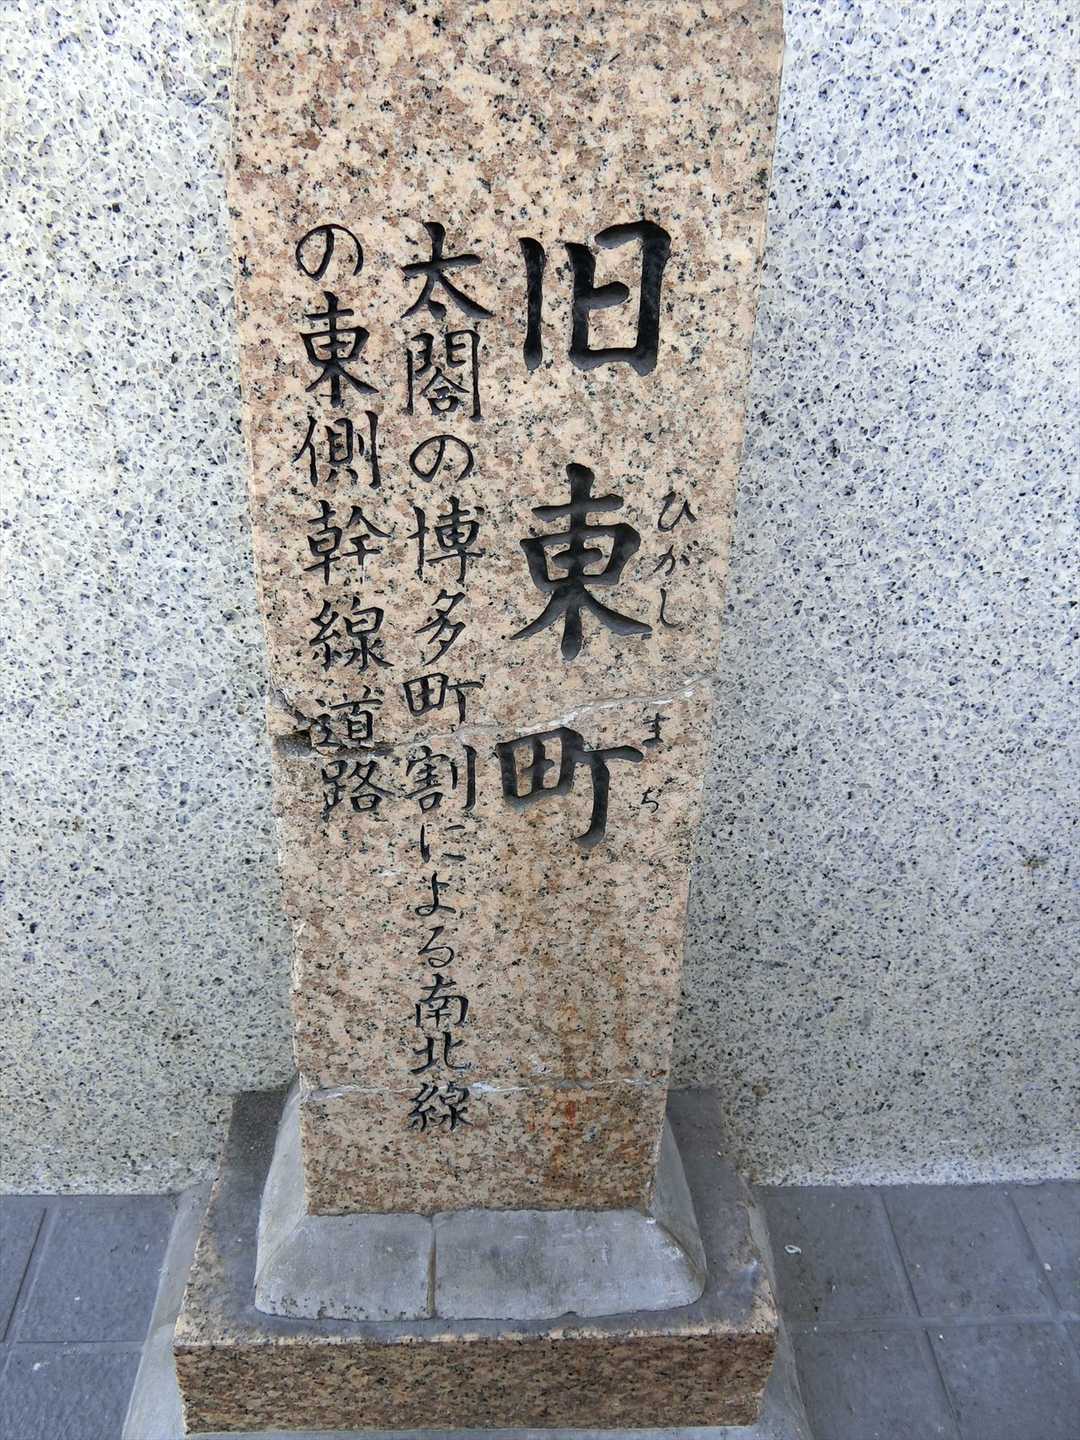 旧東町
ひがしまち
太閤の博多町割による南北線
の東側幹線道路